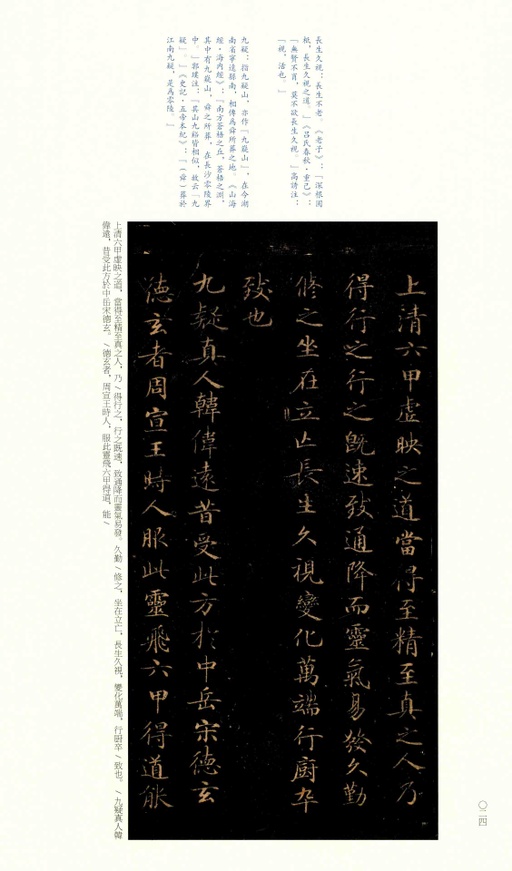 長生久視：長生不老。《老子》：「深根固
柢，長生久視之道。」《呂氏春秋·重己》：
「無賢不肖，莫不欲長生久視。」高誘注：
「視，活也。」
九疑：指九疑山，亦作「九嶷山」，在今湖
南省寧遠縣南，相傳爲舜所葬之地。《山海
經·海內經》：「南方蒼梧之丘，蒼梧之淵，
其中有九嶷山，舜之所葬，在長沙零陵界
中。」郭璞注：「其山九谿皆相似，故云『九
疑』。」《史記·五帝本紀》：「（舜）葬於
江南九疑，是爲零陵。」
上清六甲虛映之道當得至精至真之人乃
得行之行之既速致通降而靈氣易發久勤
修之坐在立亡長生久視變化萬端行廚卒
致也
九疑真人韓偉遠昔受此方於中岳宋德玄
德玄者周宣王時人服此靈飛六甲得道能
上清六甲虛映之道，當得至精至真之人，乃\得行之，行之既速，致通降而靈氣易發。久勤\修之，坐在立亡，長生久視，變化萬端，行廚卒\致也。\九疑真人韓
偉遠，昔受此方於中岳宋德玄。\德玄者，周宣王時人，服此靈飛六甲得道，能\
〇二四